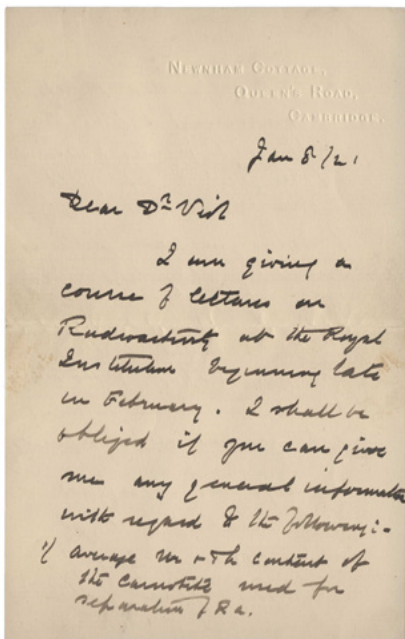 NEWNHAM COTTAGE,
QUEEN'S ROAD,
CAMBRIDGE.
Jan 8/21
Dear Dr Viol
I am giving a
course of lectures on
Radioactivity at the Royal
Institution beginning late
in February. I shall be
obliged if you can give
me any general information
with regard to the following:-
1/ average Ur + Th content of
the Carnotite used for
separation of Ra.